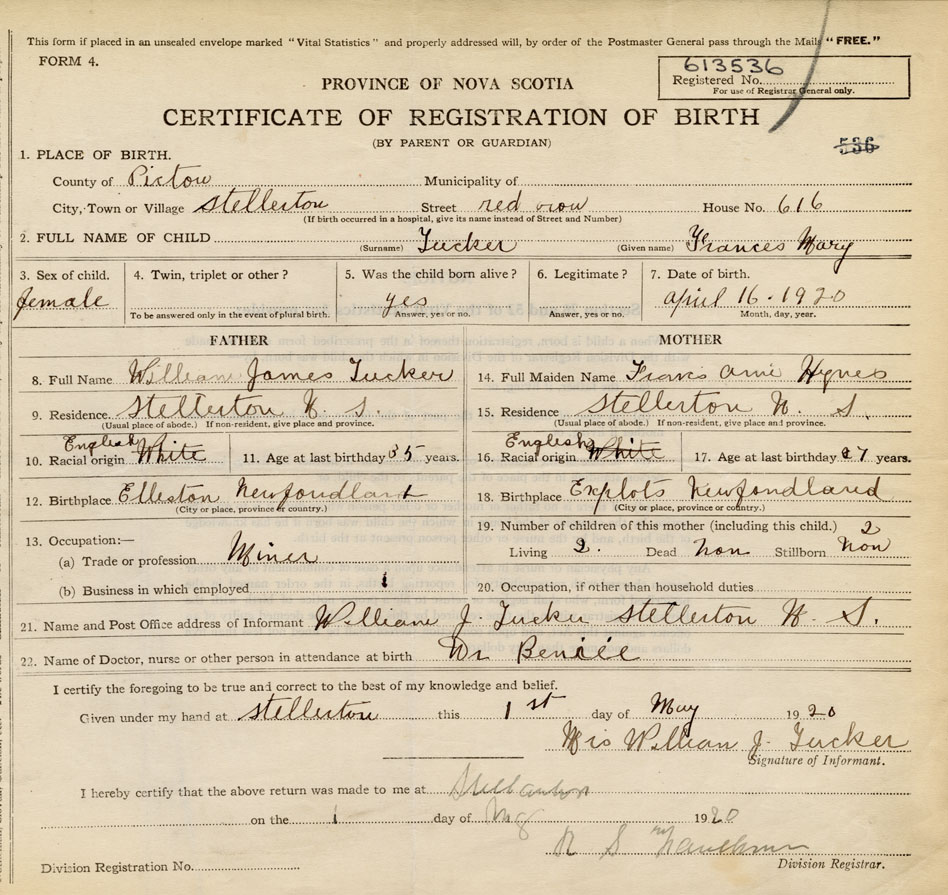 This form if placed in an unsealed envelope marked "Vital Statistics" and properly addressed will, by order of the Postmaster General pass through the Mails "FREE."
FORM 4.
613536
Registered No.
For use of Registrar General only.
PROVINCE OF NOVA SCOTIA
CERTIFICATE OF REGISTRATION OF BIRTH
(BY PARENT OR GUARDIAN)
536
1. PLACE OF BIRTH.
County of Pictou Municipality of
City, Town or Village Stellerton Street red row House No. 616
(If birth occurred in a hospital, give its name instead of Street and Number)
2. FULL NAME OF CHILD (Surname) Tucker (Given name) Frances Mary
3. Sex of child. 4. Twin, triplet or other? 5. Was the child born alive? 6. Legitimate? 7. Date of birth.
female yes april 16 - 1920
To be answered only in the event of plural birth. Answer, yes or no. Answer, yes or no. Month, day, year.
FATHER MOTHER
8. Full Name William James Tucker 14. Full Maiden Name Annie Hynes
9. Residence. Stellerton N. S. 15. Residence Stellerton N. S.
(Usual place of abode.) If non-resident, give place and province. (Usual place of abode.) If non-resident, give place and province.
English English
10. Racial origin White 11. Age at last birthday 35 years. 16. Racial origin White 17. Age at last birthday years.
12. Birthplace Elleston Newfondland 18. Birthplace Explots Newfondland
(City or place, province or country.) (City or place, province or country.)
13. Occupation:— 19. Number of children of this mother (including this child.) 2
(a) Trade or profession Miner Living 2. Dead non Stillborn non
(b) Business in which employed 20. Occupation, if other than household duties
21. Name and Post Office address of Informant William J. Tucker Stellerton N. S.
22. Name of Doctor, nurse or other person in attendance at birth Dr
I certify the foregoing to be true and correct to the best of my knowledge and belief.
Given under my hand at Stellerton this 1st day of May 1920
Mrs William J. Tucker
Signature of Informant.
I hereby certify that the above return was made to me at
on the 1 day of 1920
R S
Division Registration No. Division Registrar.